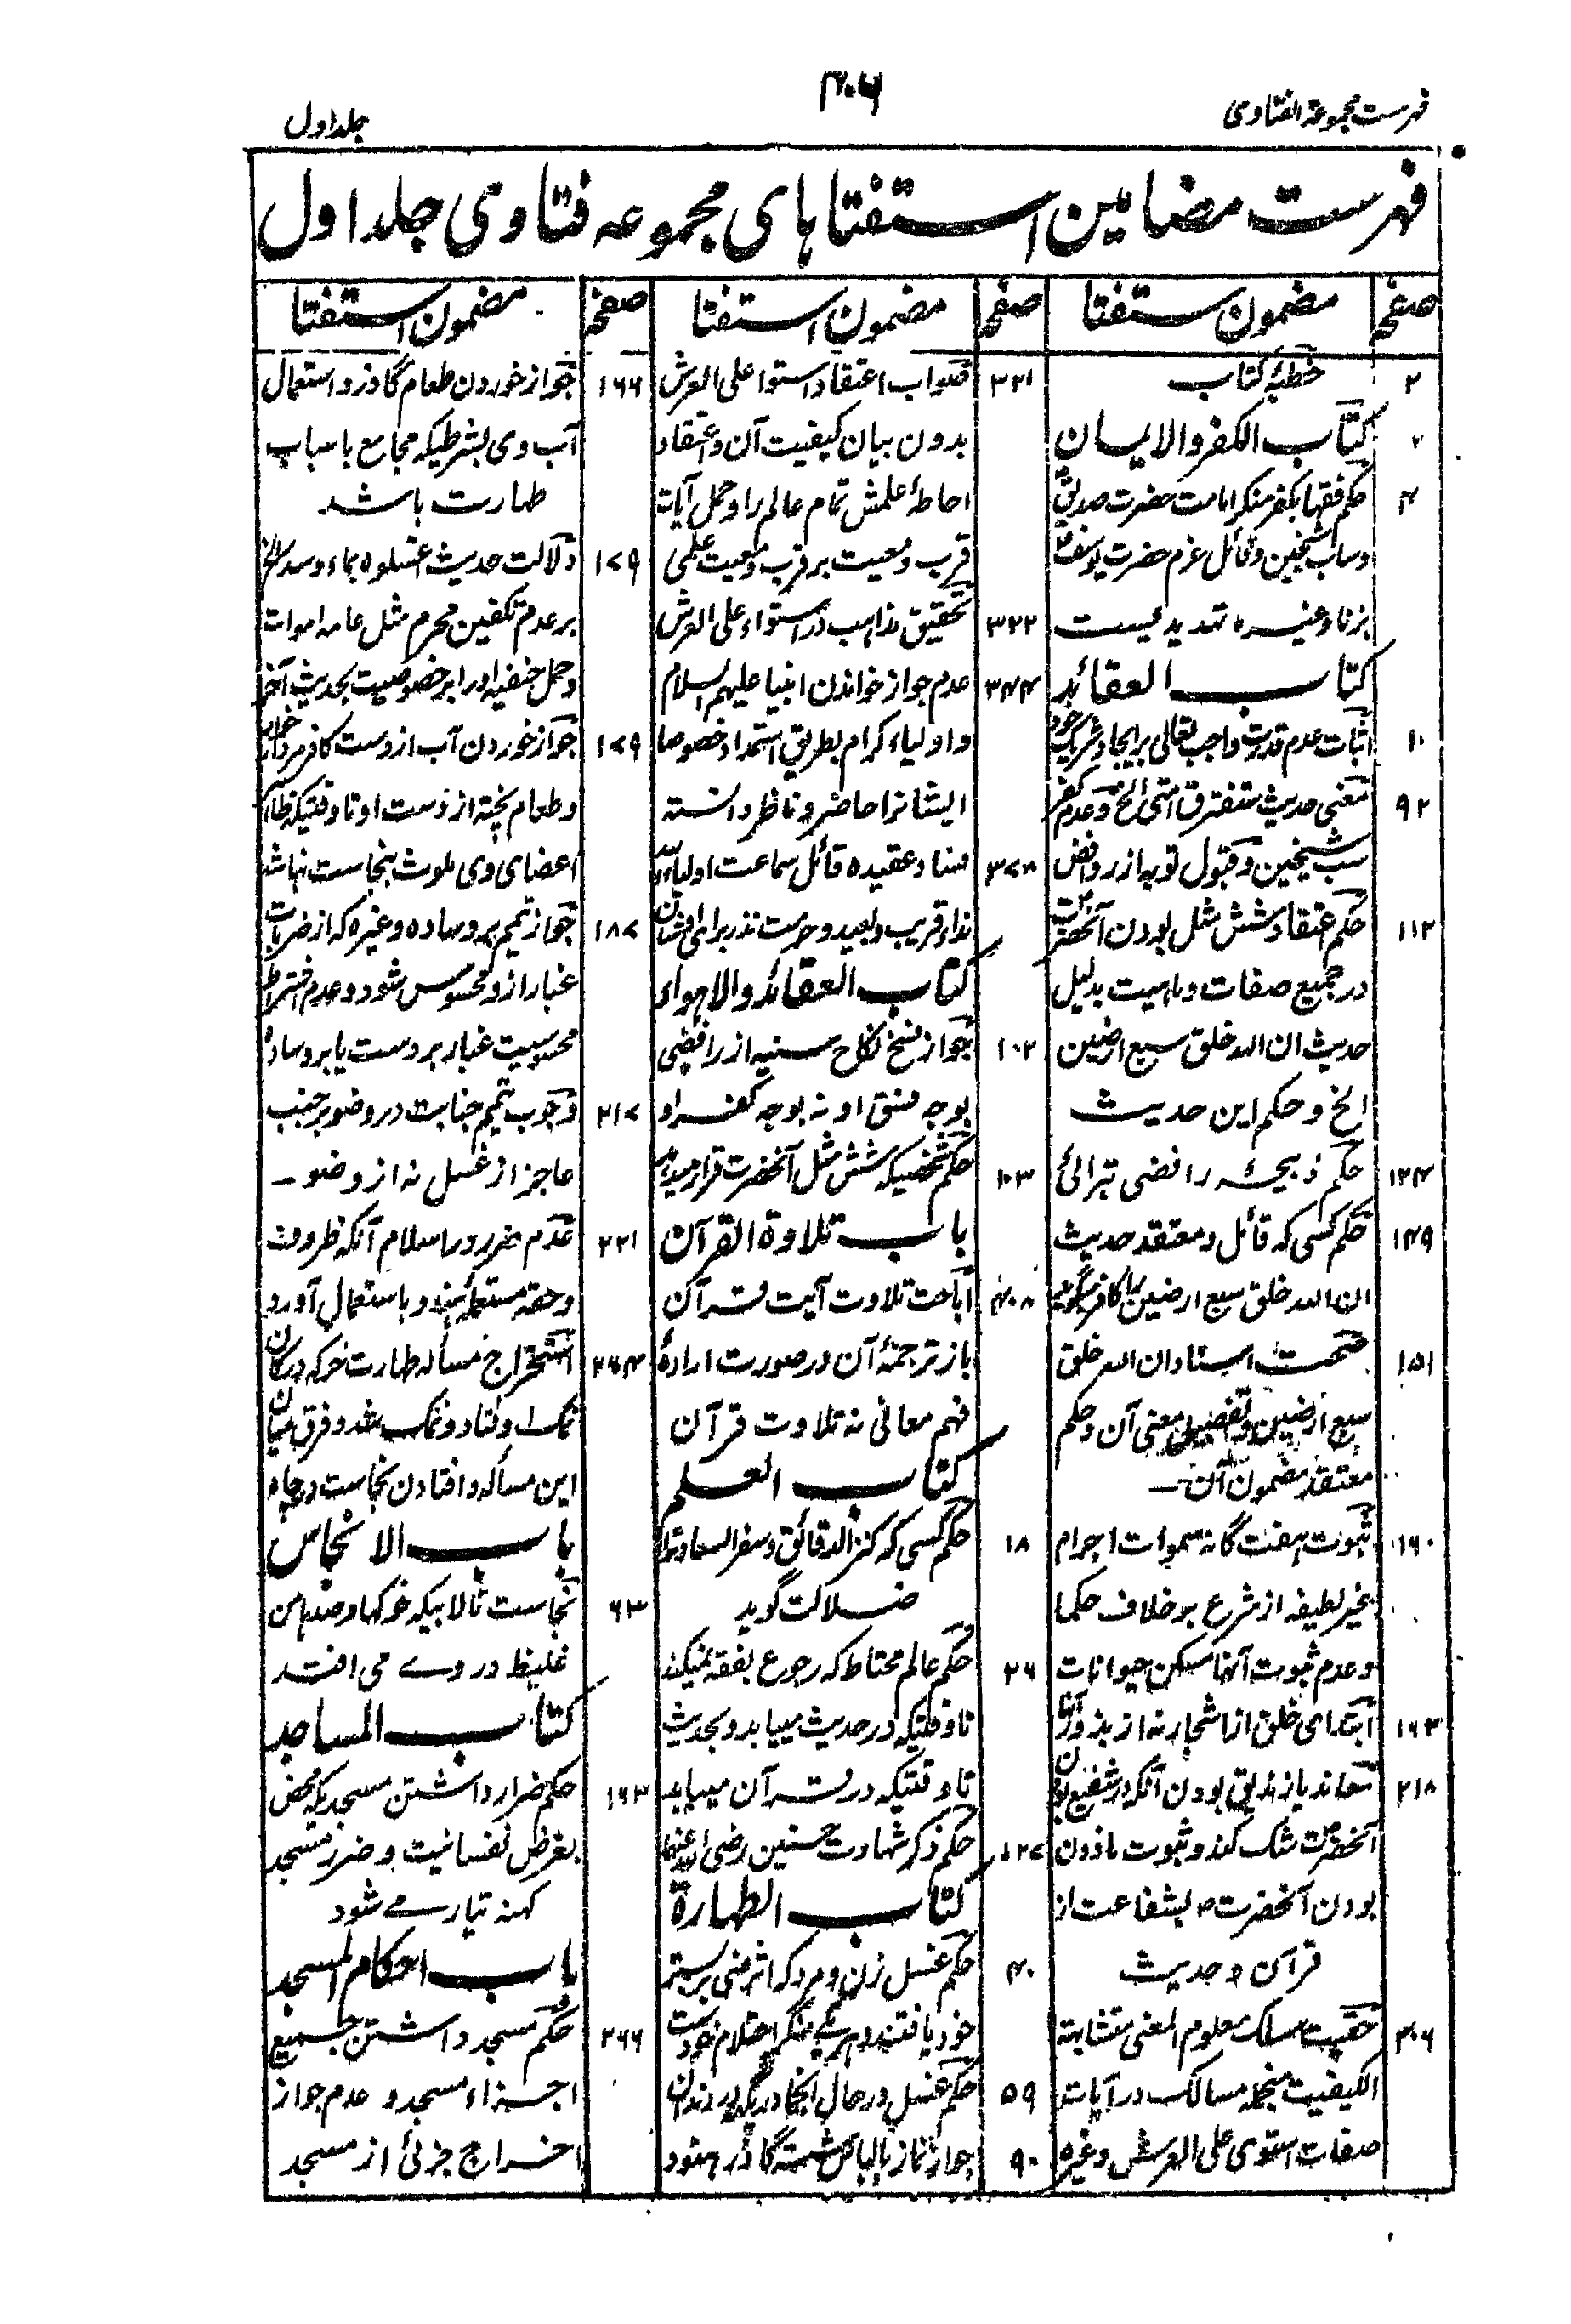 فہرست مجموعۃ الفتاوی
۴۰۶
جلد اول
فہرست مضامین استفتاہای مجموعہ فتاوی جلد اول
صفحہ مضمون استفتا صفحہ مضمون استفتا صفحہ مضمون استفتا
۲ خطبۂ کتاب
۲ کتاب الکفر والایمان
۴ حکم فقہا بکفر منکر امامت حضرت صدیق
وساب شیخین وقائل عزم حضرت یوسف
بزنا وغیرہ تہدیدیست
کتاب العقائد
۱۰ اثبات عدم قدرت واجب تعالی بر ایجاد شریک خود
۹۲ معنی حدیث ستفترق امتی الخ وعدم کفر
سب شیخین وقبول توبہ از روافض
۱۱۲ حکم اعتقاد شش مثل بودن آنحضرت
در جمیع صفات وماہیت بدلیل
حدیث ان اللہ خلق سبع ارضین
الخ وحکم این حدیث
۱۲۴ حکم ذبیحہ رافضی تبرائی
۱۴۹ حکم کسی کہ قائل ومعتقد حدیث
ان اللہ خلق سبع ارضین را کافر میگوید
۱۵۱ صحت اسناد ان اللہ خلق
سبع ارضین وتفصیل معنی آن وحکم
معتقد مضمون آن ــ
۱۶۰ ثبوت ہفت گانہ سموات اجرام
غیر لطیفہ از شرع بر خلاف حکما
وعدم ثبوت آنہا مسکن حیوانات
۱۶۳ ابتدای خلق از اشجار نہ از بذور آنہا
۲۱۸ معاند یا زندیق بودن آنکہ در شفیع بودن
آنحضرت شک کند وثبوت ماذون
بودن آنحضرت ص بشفاعت از
قرآن وحدیث
۳۰۶ حقیت مسلک معلوم المعنی متشابہۃ
الکیفیت منجملہ مسالک در آیات
صفات استوی علی العرش وغیرہ
۳۲۱ صواب اعتقاد استوا علی العرش
بدون بیان کیفیت آن واعتقاد
احاطۂ علمش تمام عالم را وحمل آیات
قرب ومعیت بر قرب ومعیت علمی
۳۲۲ تحقیق مذاہب در استواء علی العرش
۳۴۴ عدم جواز خواندن انبیا علیہم السلام
واولیاء کرام بطریق استمداد خصوصا
ایشانرا حاضر وناظر دانستہ
۳۷۸ فساد عقیدہ قائل سماعت اولیاء اللہ
نداء قریب وبعید وحرمت نذر برای ایشان
کتاب العقائد والاہواء
۱۰۲ جواز فسخ نکاح سنیہ از رافضی
بوجہ فسق او نہ بوجہ کفر او
۱۰۳ حکم شخصیکہ شش مثل آنحضرت قرار میدہد
باب تلاوۃ القرآن
۴۰۸ اباحت تلاوت آیت قرآن
باز ترجمۂ آن در صورت ارادۂ
فہم معانی نہ تلاوت قرآن
کتاب العلم
۱۸ حکم کسی کہ کنز الدقائق وسفر السعادۃ را
ضلالت گوید
۲۶ حکم عالم محتاط کہ رجوع بفقہ نمیکند
تا وقتیکہ در حدیث مییابد وبحدیث
تا وقتیکہ در قرآن مییابد
۱۲۷ حکم ذکر شہادت حسنین رضی اللہ عنہما
کتاب الطہارۃ
۴۰ حکم غسل زن ومرد کہ اثر منی بر بستر
خود یافتند وہر یکے منکر احتلام خودست
۵۹ حکم غسل در حال
۹۰ جواز نماز بالباس شستہ گاذر ہنود
۱۶۶ جواز خوردن طعام گاذر واستعمال
آب وی بشرطیکہ مجامع باسباب
طہارت باشد
۱۷۹ دلالت حدیث اغسلوہ بماء وسدر الخ
بر عدم تکفین محرم مثل عامہ اموات
وحمل حنفیہ او را بر خصوصیت بحدیث آخر
۱۷۹ جواز خوردن آب از دست کافر مردار خوار
وطعام پختہ از دست او تا وقتیکہ ظاہر
اعضای وی ملوث بنجاست نباشد
۱۸۷ جواز تیمم بر وسادہ وغیرہ کہ از ضربات
غبار ازو محسوس شود وعدم اشتراط
محسوسیت غبار بر دست یا بر وسادہ
۲۱۷ وجوب تیمم جنابت در وضو بر جنب
عاجز از غسل نہ از وضو ــ
۲۲۱ عدم ضرر در اسلام آنکہ ظروف
وحقہ مستعملہ ہنود باستعمال آورد
۲۶۴ استخراج مسألہ طہارت خر کہ در کان
نمک اوفتاد ونمک شد وفرق میان
این مسألہ وافتادن نجاست در چاہ
باب الانجاس
۶۳ نجاست تالابیکہ خوکہا وضدہا من
غلیظ در وے می افتد
کتاب المساجد
۱۶۳ حکم ضرار داشتن مسجدیکہ محض
بغرض نفسانیت وضرر مسجد
کہنہ تیار مے شود
باب احکام المسجد
۲۶۶ حکم مسجد داشتن جمیع
اجزاء مسجد وعدم جواز
اخراج جزئی از مسجد